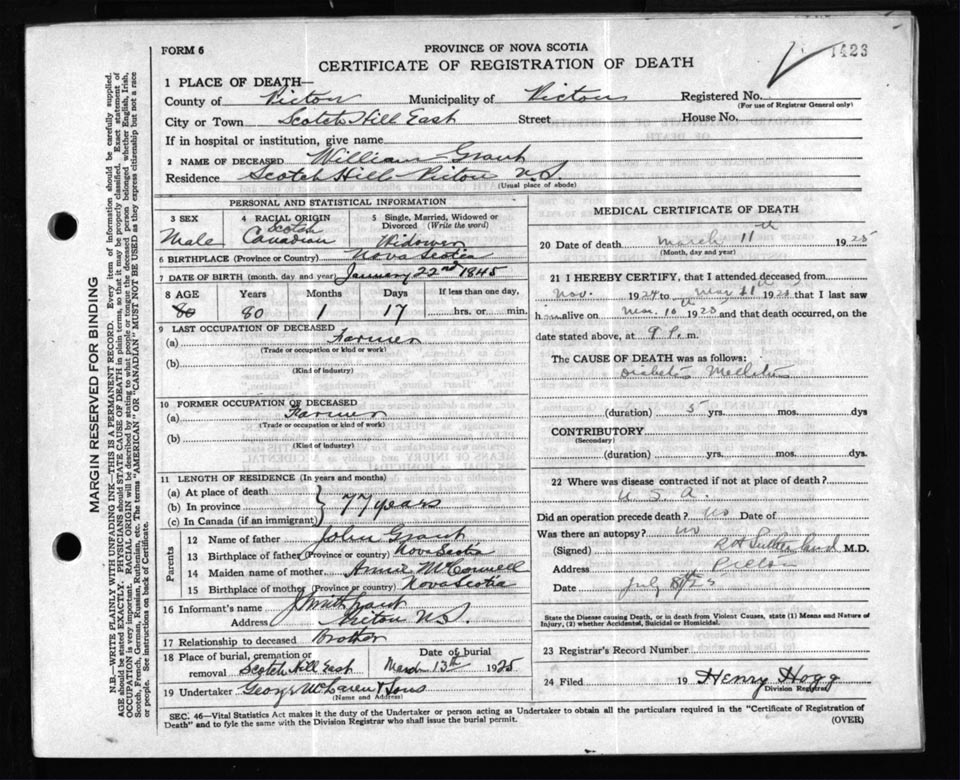 FORM 6
PROVINCE OF NOVA SCOTIA
1423
CERTIFICATE OF REGISTRATION OF DEATH
1 PLACE OF DEATH—
County of Pictou Municipality of Pictou Registered No.
(For use of Registrar General only)
City or Town Scotch Hill East Street House No.
If in hospital or institution, give name
2 NAME OF DECEASED William Grant
Residence Scotch Hill Pictou N.S.
(Usual place of abode)
PERSONAL AND STATISTICAL INFORMATION
3 SEX
Male
4 RACIAL ORIGIN
Scotch
Canadian
5 Single, Married, Widowed or
Divorced (Write the word)
Widower
6 BIRTHPLACE (Province or Country) Nova Scotia
7 DATE OF BIRTH (month, day and year) January 22nd 1845
8 AGE Years Months Days If less than one day,
80 80 1 17 hrs. or min.
9 LAST OCCUPATION OF DECEASED
(a) Farmer
(Trade or occupation or kind or work)
(b)
(Kind of industry)
10 FORMER OCCUPATION OF DECEASED
(a) Farmer
(Trade or occupation or kind or work)
(b)
(Kind of industry)
11 LENGTH OF RESIDENCE (In years and months)
(a) At place of death
(b) In province 77 years
(c) In Canada (if an immigrant)
Parents
12 Name of father John Grant
13 Birthplace of father (Province or country) Nova Scotia
14 Maiden name of mother Annie McConnell
15 Birthplace of mother (Province or country) Nova Scotia
16 Informant's name Grant
Address Pictou N.S.
17 Relationship to deceased brother
18 Place of burial, cremation or removal Scotch Hill East
Date of burial
March 13th 1925
19 Undertaker George McLaren & Sons
(Name and Address)
MEDICAL CERTIFICATE OF DEATH
20 Date of death March 11th 1925
(Month, day and year)
21 I HEREBY CERTIFY, that I attended deceased from
Nov. 1924 to Mar 11th 1925 that I last saw
him alive on Mar. 10th 1925 and that death occurred, on the
date stated above, at 9 P. m.
The CAUSE OF DEATH was as follows:
Diabetes Mellitus
(duration) 5 yrs. mos. dys
CONTRIBUTORY
(Secondary)
(duration) yrs. mos. dys.
22 Where was disease contracted if not at place of death?
U.S.A.
Did an operation precede death? No Date of
Was there an autopsy? no
(Signed) Sutherland M.D.
Address Pictou
Date July
State the Disease causing Death, or in Death from Violent Causes, state (1) Means and Nature of
Injury, (2) whether Accidental, Suicidal or Homicidal.
23 Registrar's Record Number
24 Filed 19 Henry Hogg
Division Registrar
SEC. 46—Vital Statistics Act makes it the duty of the Undertaker or person acting as Undertaker to obtain all the particulars required in the "Certificate of Registration of
Death" and to fyle the same with the Division Registrar who shall issue the burial permit.
(OVER)
MARGIN RESERVED FOR BINDING
N.B.—WRITE PLAINLY WITH UNFADING INK—THIS IS A PERMANENT RECORD. Every item of information should be carefully supplied.
AGE should be stated EXACTLY. PHYSICIANS should STATE CAUSE OF DEATH in plain terms, so that it may be properly classified. Exact statement of
OCCUPATION is very important. RACIAL ORIGIN will be described by stating to what people or tongue the deceased person belonged whether English, Irish,
Scotch, French, German, Russian, Ruthenian, etc. The terms "AMERICAN" OR "CANADIAN" MUST NOT BE USED as they express citizenship but not a race
or people. See instructions on back of Certificate.